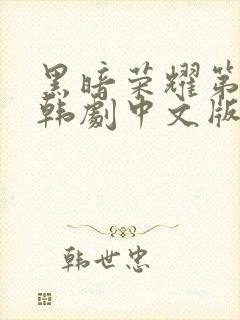 黑暗荣耀第
韩劇中文版
韩世忠